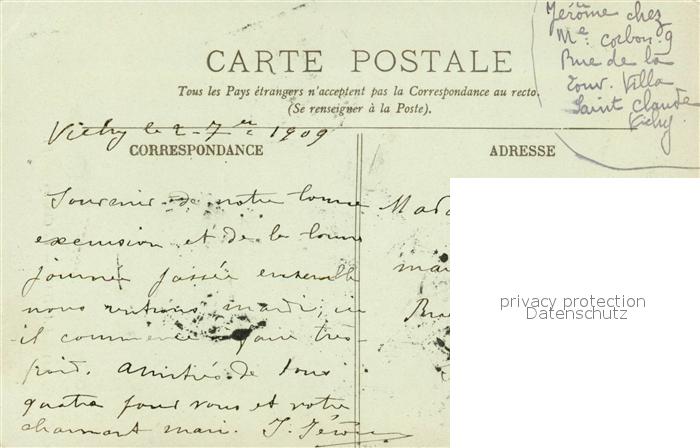 Jérôme chez
Me Corbon 9
Rue de la
Tour. Villa
Saint Claude
Vichy
CARTE POSTALE
Tous les Pays étrangers n'acceptent pas la Correspondance au recto.
(Se renseigner à la Poste).
Vichy le 2-7 1909
CORRESPONDANCE
ADRESSE
Souvenir de notre bonne
excursion et de la bonne
journée passée ensemble
nous rentrons mardi, ici
il commence faire très
froid. Amitiés de tous
quatre pour vous et votre
charmant mari. J. Jérôme
Mada
privacy protection
Datenschutz